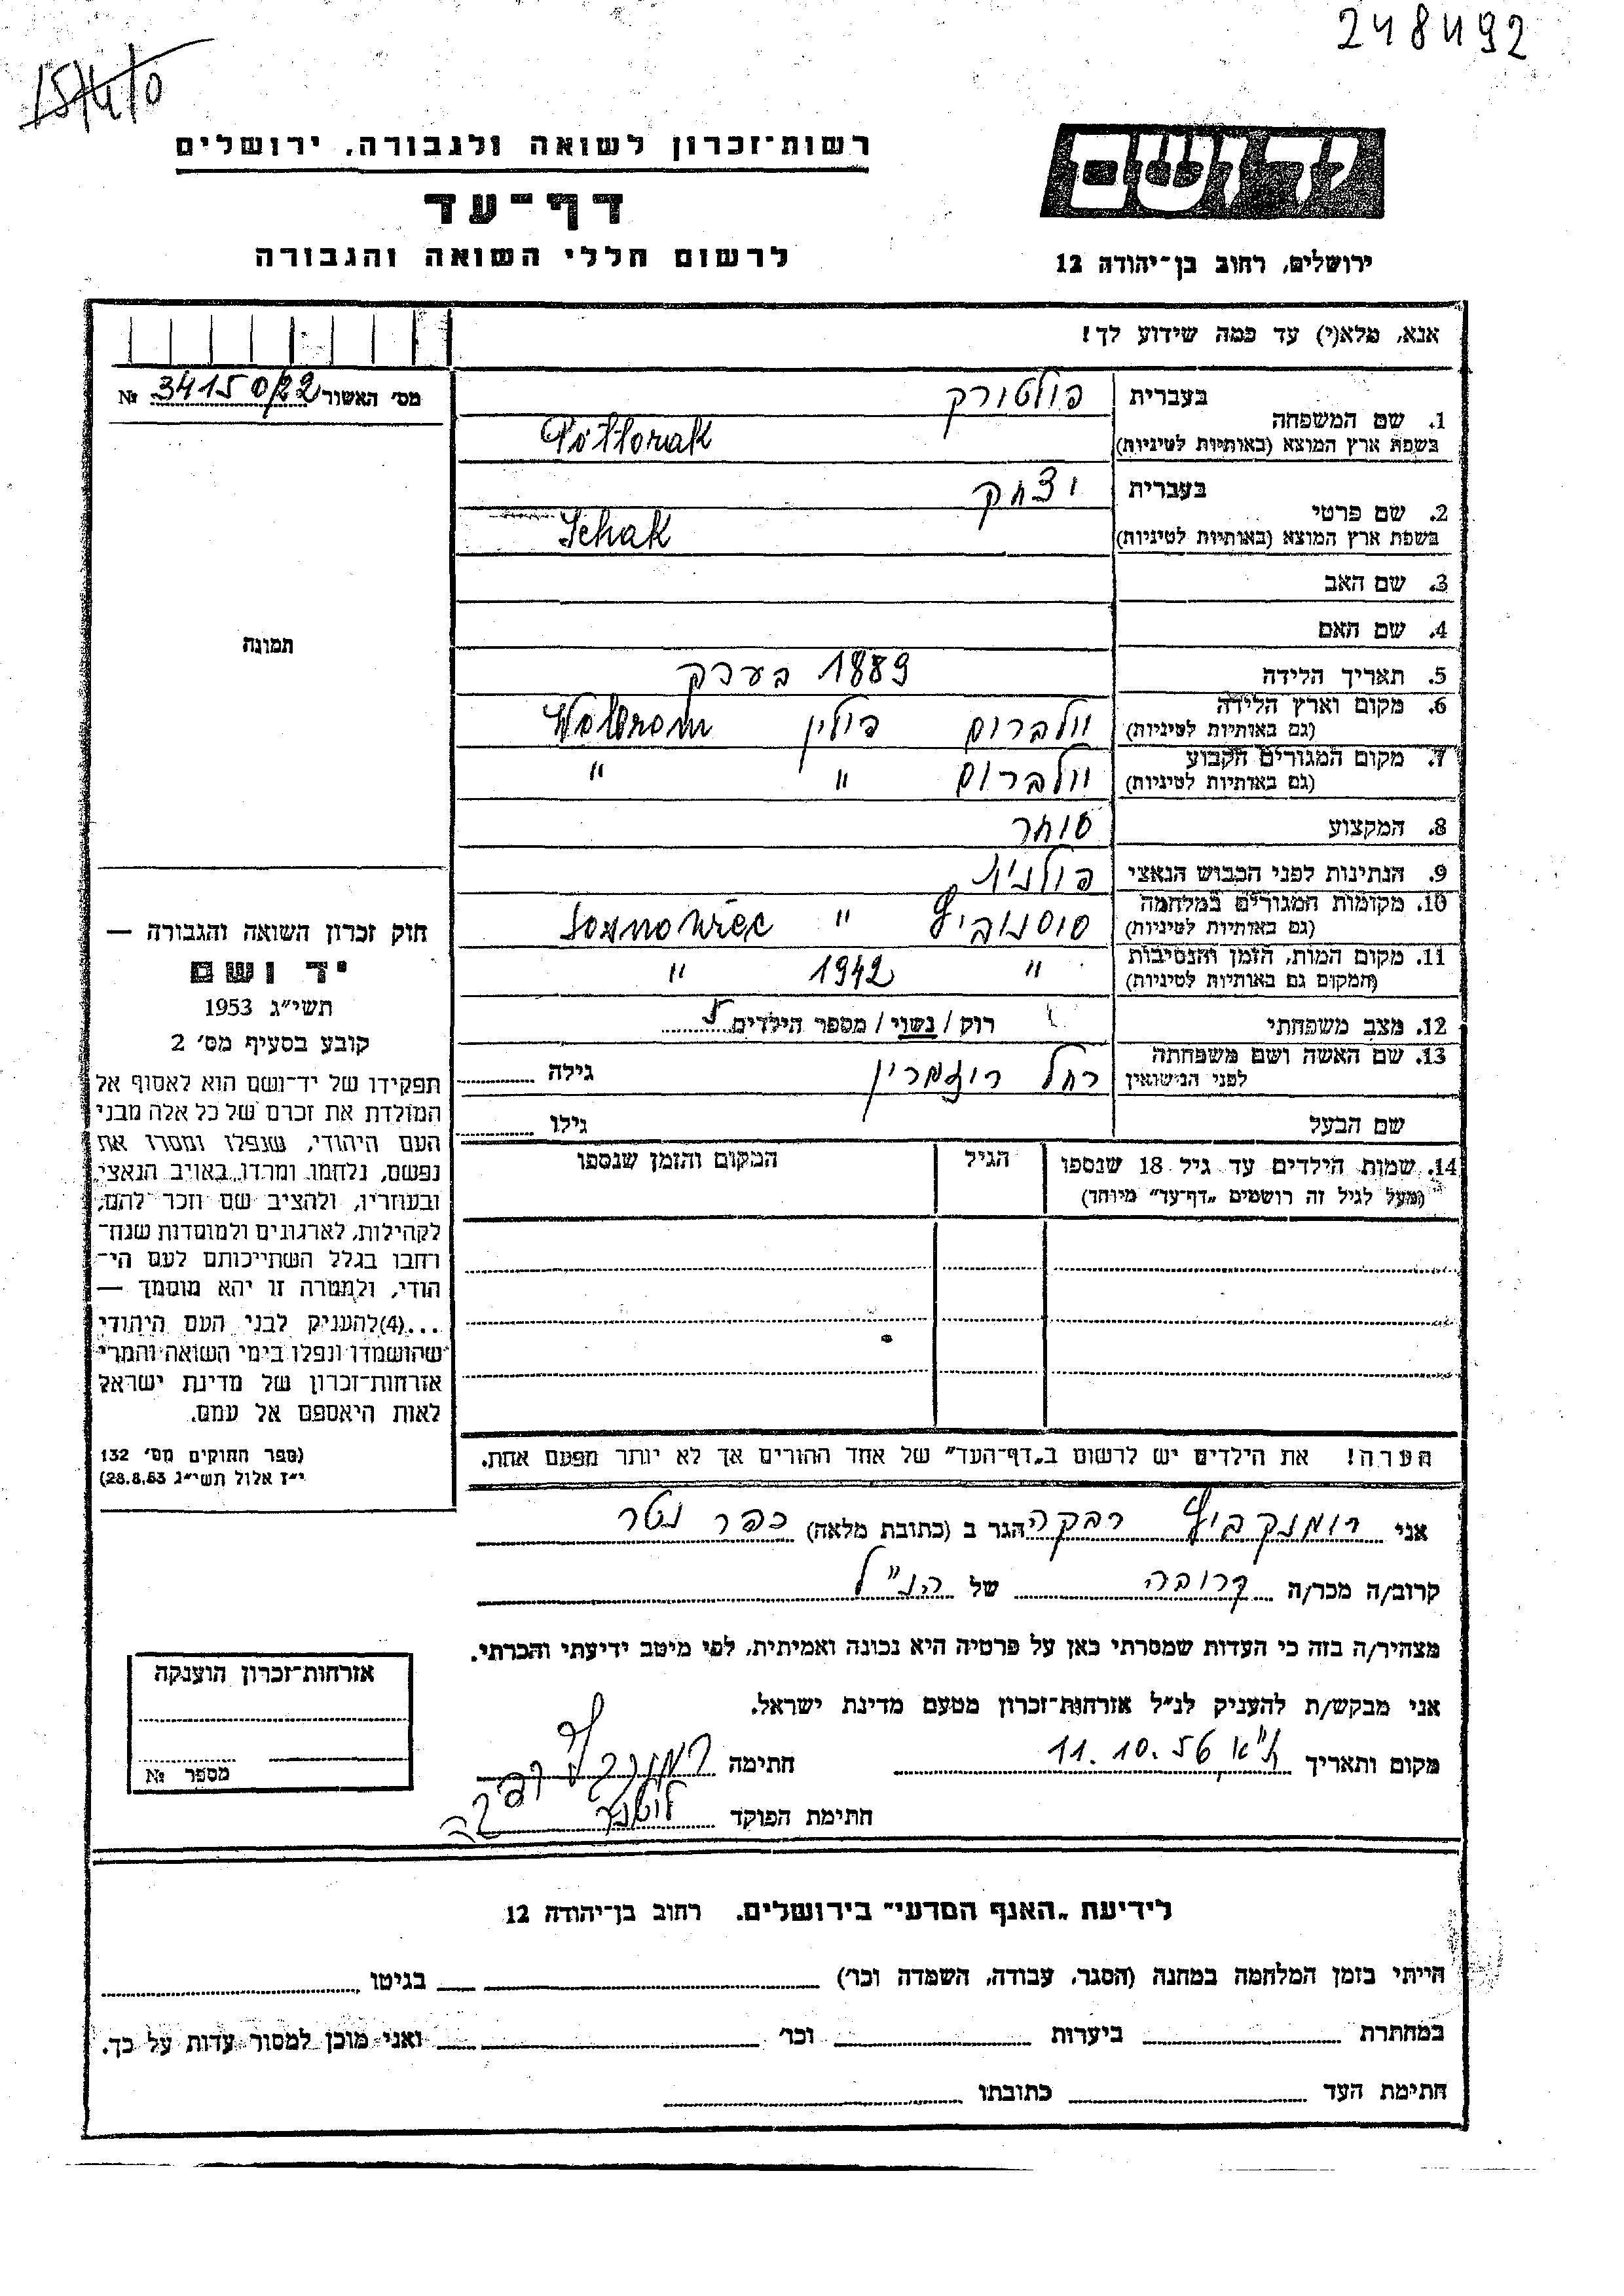 248492
15/4/0
רשות־זכרון לשואה ולגבורה. ירושלים
דף־עד
לרשום חללי השואה והגבורה
יד ושם
ירושלים, רחוב בן־יהודה 12
אנא, מלא(י) עד כמה שידוע לך!
מס׳ האשור № 34150/22
תמונה
1. שם המשפחה
בעברית פולטורק
בשפת ארץ המוצא (באותיות לטיניות) Pottorak
2. שם פרטי
בעברית יצחק
בשפת ארץ המוצא (באותיות לטיניות) Ichak
3. שם האב
4. שם האם
5. תאריך הלידה 1889 בערך
6. מקום וארץ הלידה
(גם באותיות לטיניות) וולברום פולין Wolbrom
7. מקום המגורים הקבוע
(גם באותיות לטיניות) וולברום " "
8. המקצוע סוחר
9. הנתינות לפני הכבוש הנאצי פולנית
10. מקומות המגורים במלחמה
(גם באותיות לטיניות) סוסנוביץ " Sosnowiec
11. מקום המות, הזמן והנסיבות
(המקום גם באותיות לטיניות) " 1942 "
12. מצב משפחתי רוק / נשוי / מספר הילדים 5
13. שם האשה ושם משפחתה
לפני הנישואין רחל רוזמרין גילה
שם הבעל גילו
14. שמות הילדים עד גיל 18 שנספו
(מעל לגיל זה רושמים „דף־עד" מיוחד)
הגיל
המקום והזמן שנספו
חוק זכרון השואה והגבורה —
יד ושם
תשי״ג 1953
קובע בסעיף מס׳ 2
תפקידו של יד־ושם הוא לאסוף אל
המולדת את זכרם של כל אלה מבני
העם היהודי, שנפלו ומסרו את
נפשם, נלחמו ומרדו באויב הנאצי
ובעוזריו, ולהציב שם וזכר להם,
לקהילות, לארגונים ולמוסדות שנח־
רחבו בגלל השתייכותם לעם הי־
הודי, ולמטרה זו יהא מוסמך —
...(4)להעניק לבני העם היהודי
שהושמדו ונפלו בימי השואה והמרי
אזרחות־זכרון של מדינת ישראל
לאות היאספם אל עמם.
(ספר החוקים מס׳ 132
י״ז אלול תשי״ג 28.8.53)
הערה! את הילדים יש לרשום ב„דף־העד" של אחד ההורים אך לא יותר מפעם אחת.
אני רומנקביץ רבקה הגר ב (כתובת מלאה) כפר נטר
קרוב/ה מכר/ה קרובה של הנ"ל
מצהיר/ה בזה כי העדות שמסרתי כאן על פרטיה היא נכונה ואמיתית, לפי מיטב ידיעתי והכרתי.
אני מבקש/ת להעניק לנ״ל אזרחות־זכרון מטעם מדינת ישראל.
מקום ותאריך ת"א 11.10.56 חתימה
חתימת הפוקד
אזרחות־זכרון הוענקה
מספר №
לידיעת „האגף המדעי" בירושלים. רחוב בן־יהודה 12
הייתי בזמן המלחמה במחנה (הסגר, עבודה, השמדה וכו׳) בגיטו
במחתרת ביערות וכו׳ ואני מוכן למסור עדות על כך.
חתימת העד כתובתו